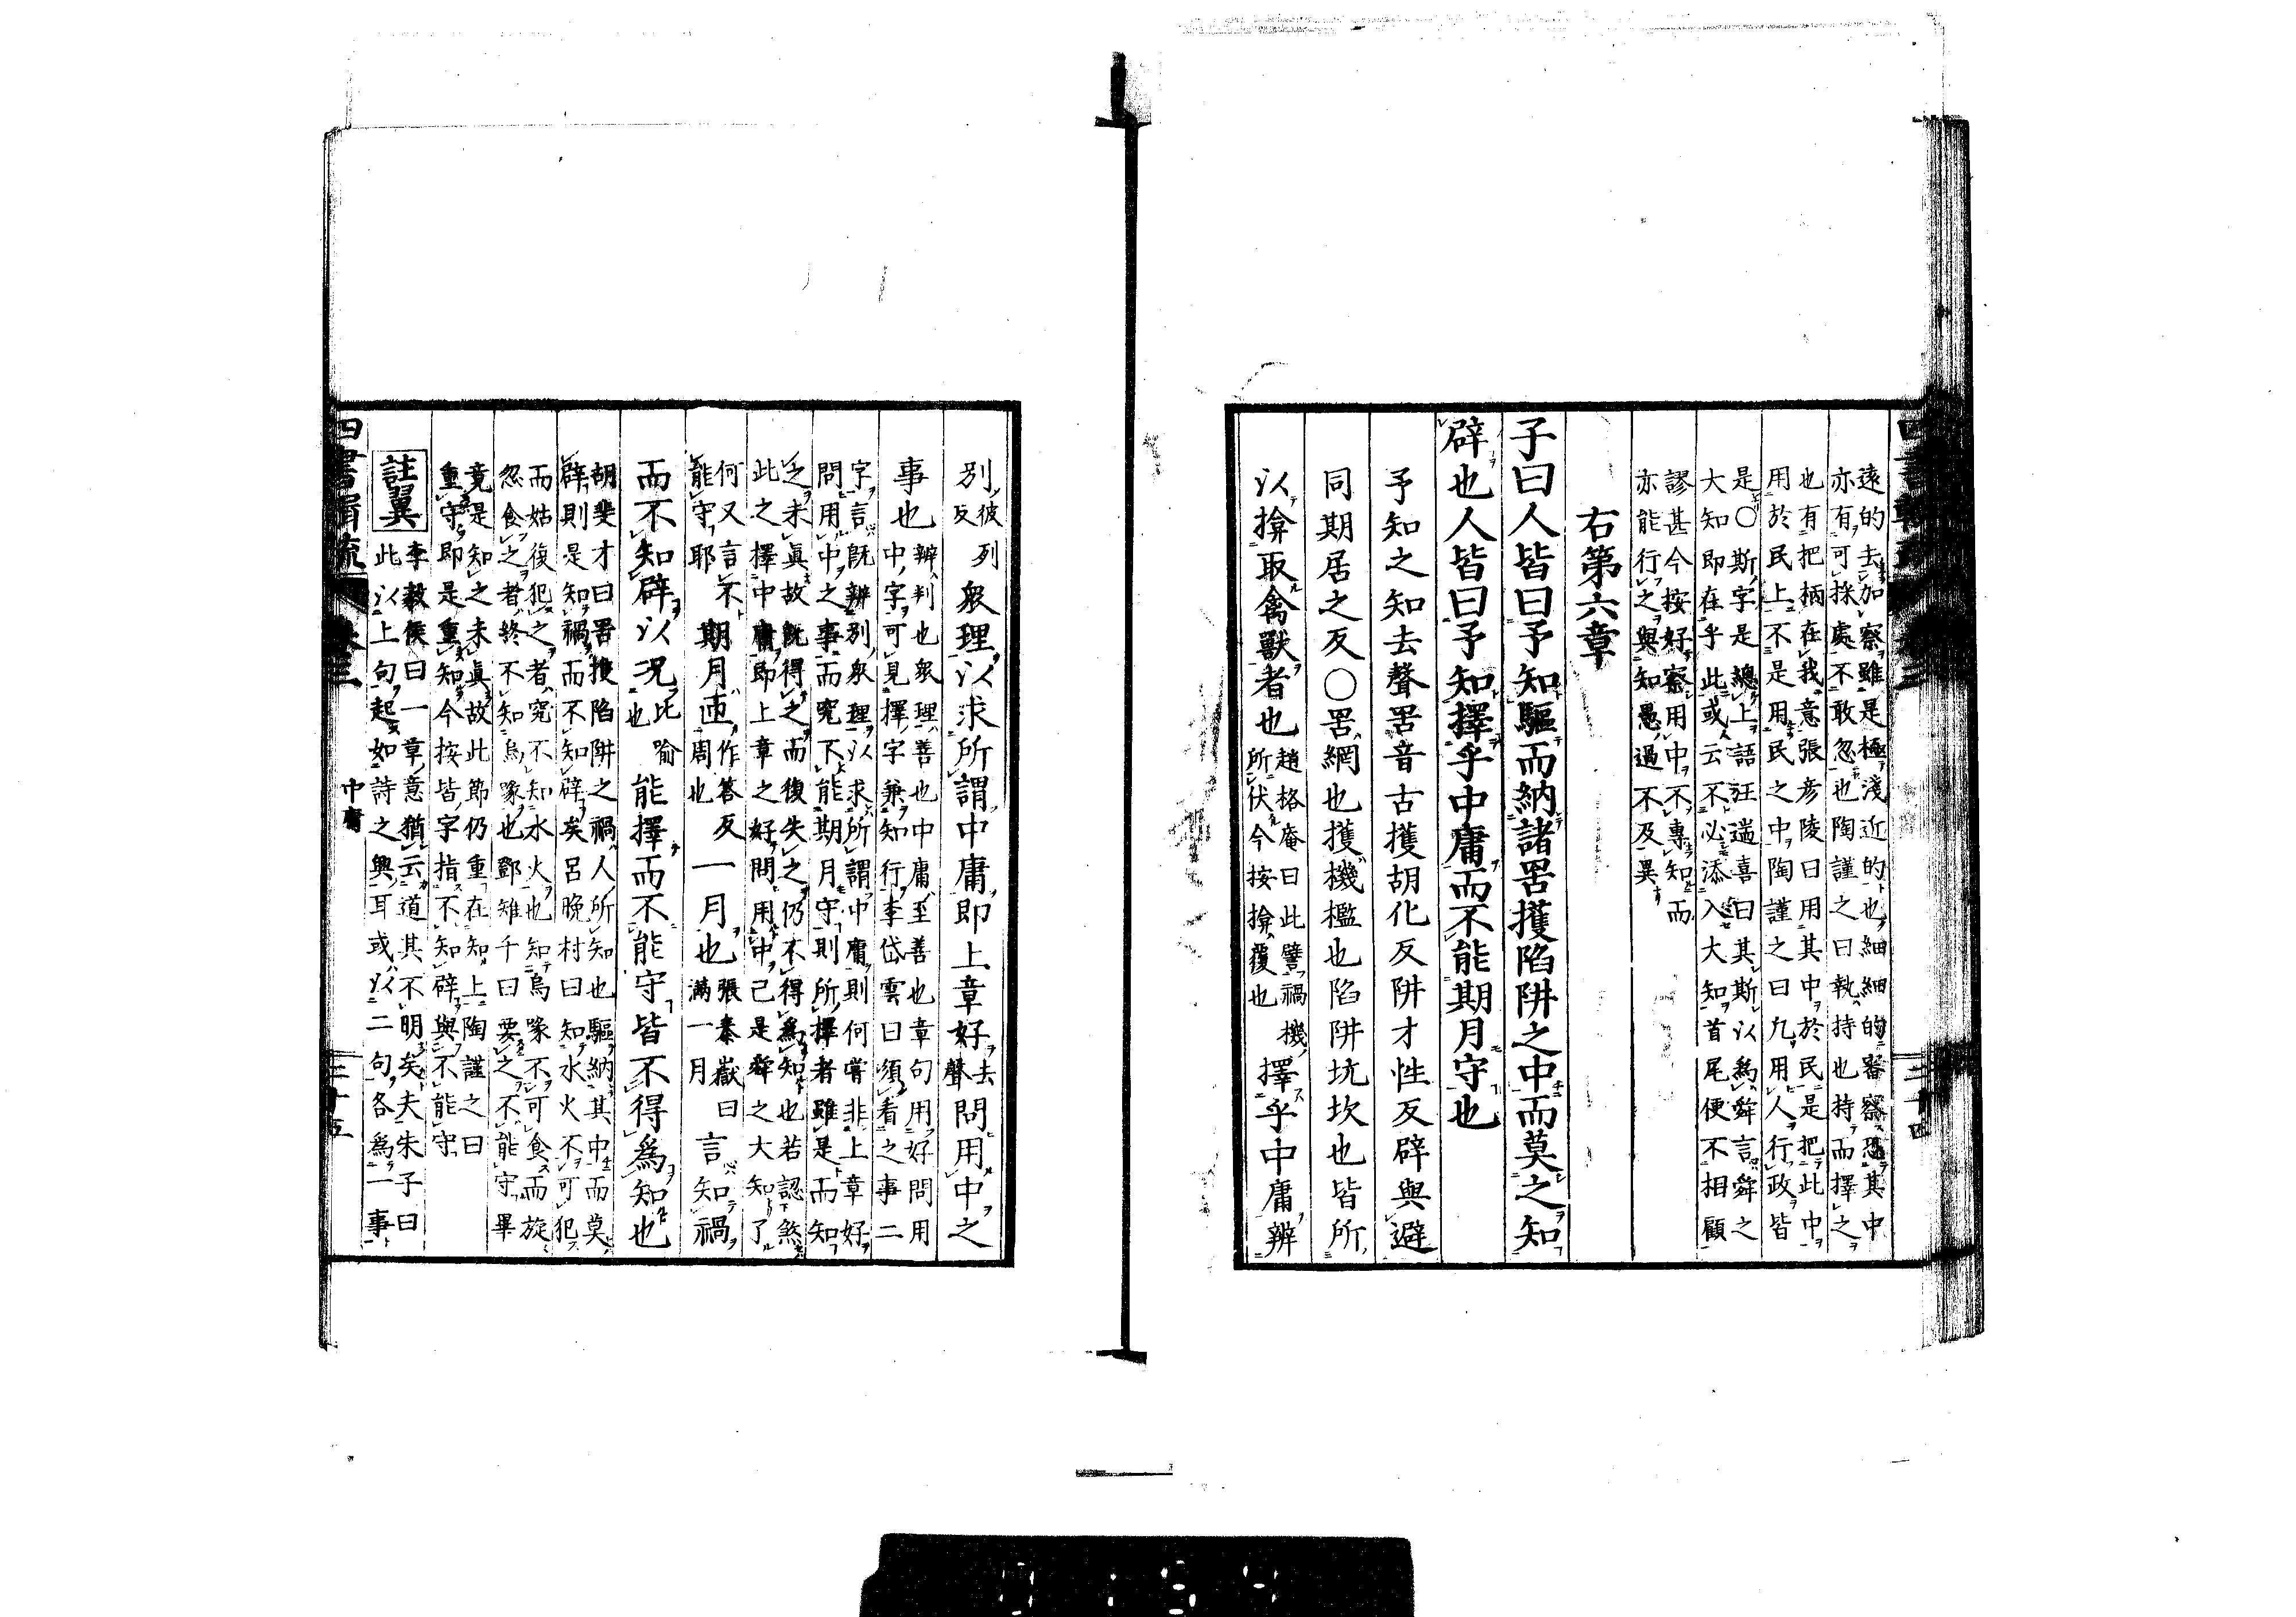 遠的去加察雖是極淺近的也細細的審察恐其中
亦有可採處不敢忽也陶謹之曰執持也持而擇之
也有把柄在我意張彦陵曰用其中於民是把此中
用於民上不是用民之中陶謹之曰凡用人行政皆
是○斯字是總上語汪遄喜曰其斯以爲舜言舜之
大知即在乎此或云不必添入大知首尾便不相顧
謬甚今按好察用中不專知而
亦能行之與知愚過不及異
右第六章
子曰人皆曰予知驅而納諸罟擭陷阱之中而莫之知
辟也人皆曰予知擇乎中庸而不能期月守也
予知之知去聲罟音古擭胡化反阱才性反辟與避
同期居之反○罟網也擭機檻也陷阱坑坎也皆所
以揜取禽獸者也
趙格庵曰此譬禍機
所伏今按揜覆也
擇乎中庸辨
別
彼列
反
衆理以求所謂中庸即上章好
去
聲
問用中之
事也
辨判也衆理善也中庸至善也章句用好問用
中字可見擇字兼知行李岱雲曰須看之事二
字言既辨別衆理以求所謂中庸則何嘗非上章好
問用中之事而究不能期月守則所擇者雖是而知
之未眞故既得之而復失之仍不得爲知也若認煞
此之擇中庸即上章之好問用中已是舜之大知了
何又言不
能守耶
期月匝
作答反
周也
一月也
張泰嶽曰
滿一月
言知禍
而不知辟以況
比喻
也
能擇而不能守皆不得爲知也
胡斐才曰罟擭陷阱之禍人所知也驅納其中而莫
辟則是知禍而不知辟矣呂晚村曰知水火不可犯
而姑復犯之者究不知水火也知烏喙不可食而旋
忽食之者終不知烏喙也鄧雉千曰要之不能守畢
竟是知之未眞故此節仍重在知上陶謹之曰
重守即是重知今按皆字指不知辟與不能守
註翼
李毅侯曰一章意猶云道其不明矣夫朱子曰
此以上句起如詩之興耳或以二句各爲一事
中庸